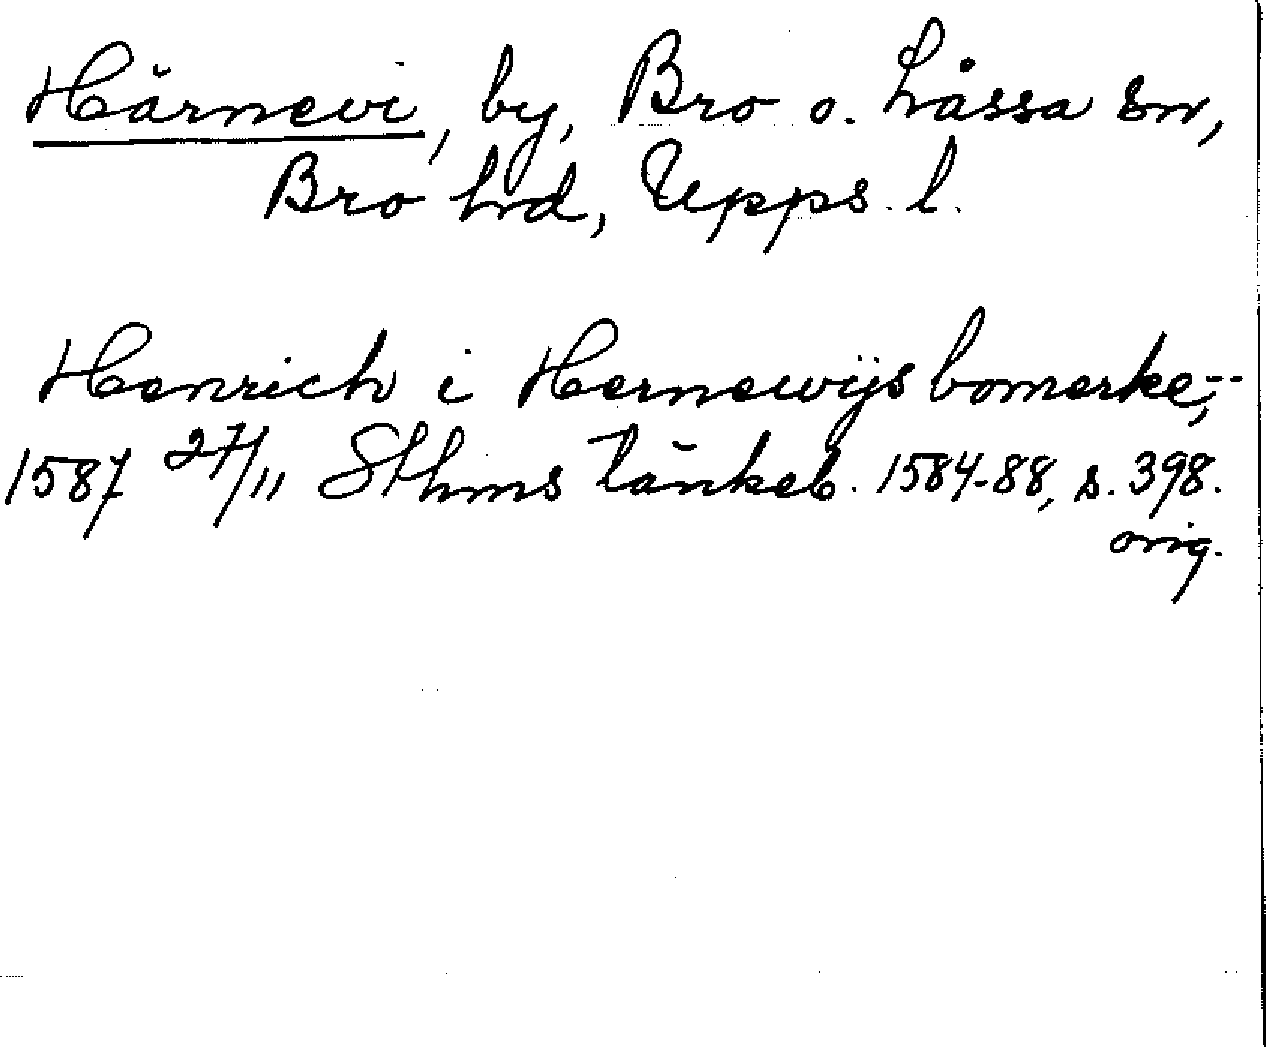 Härnevi, by, Bro o. Låssa sn,
Bro hrd, Upps. l.
Henrich i Hernewijs bomerke,--
1587 27/11 Sthms tänkeb. 1584-88, s. 398.
orig.